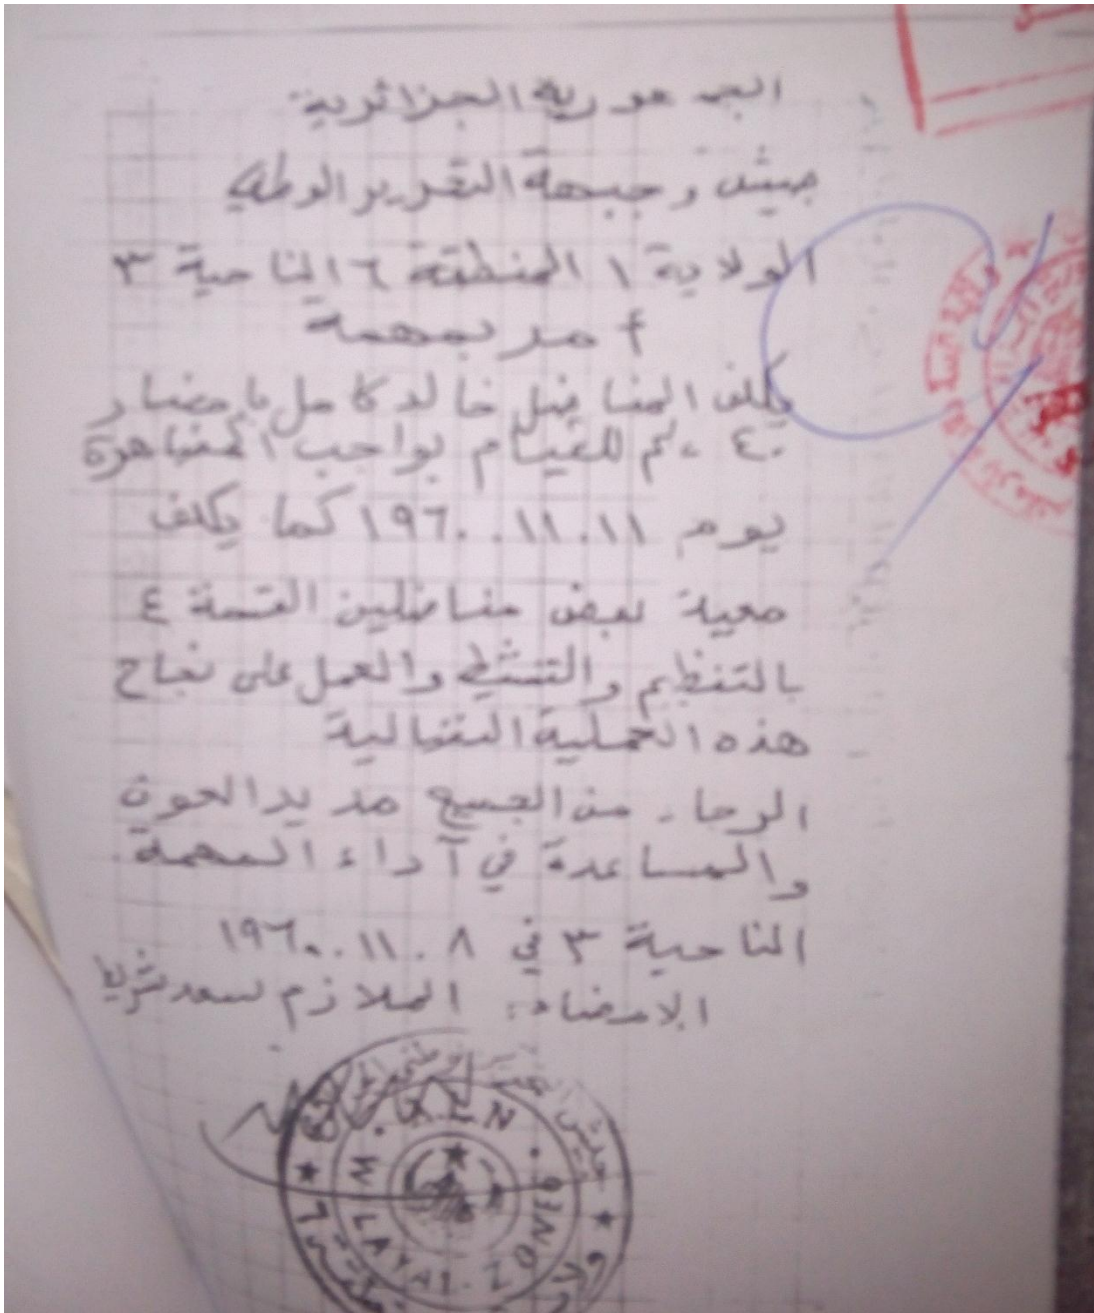 الجمهورية الجزائرية
جيش و جبهة التحرير الوطني
الولاية ١ المنطقة ٦ الناحية ٣
أمر بمهمة
يكلف المناضل خالد كامل باحضار
للقيام بواجب المضاهرة
يوم ١١.١١.١٩٦٠ كما يكلف
معية بعض مناضلين القسمة ٤
بالتنظيم والتنشيط والعمل على نجاح
هذه العملية النضالية
الرجاء من الجميع مد يد العون
والمساعدة في آداء المهمة
الناحية ٣ في ٨.١١.١٩٦٠
الامضاء: الملازم لسعد شريط
جيش
W.
LAYA1.ZONE6